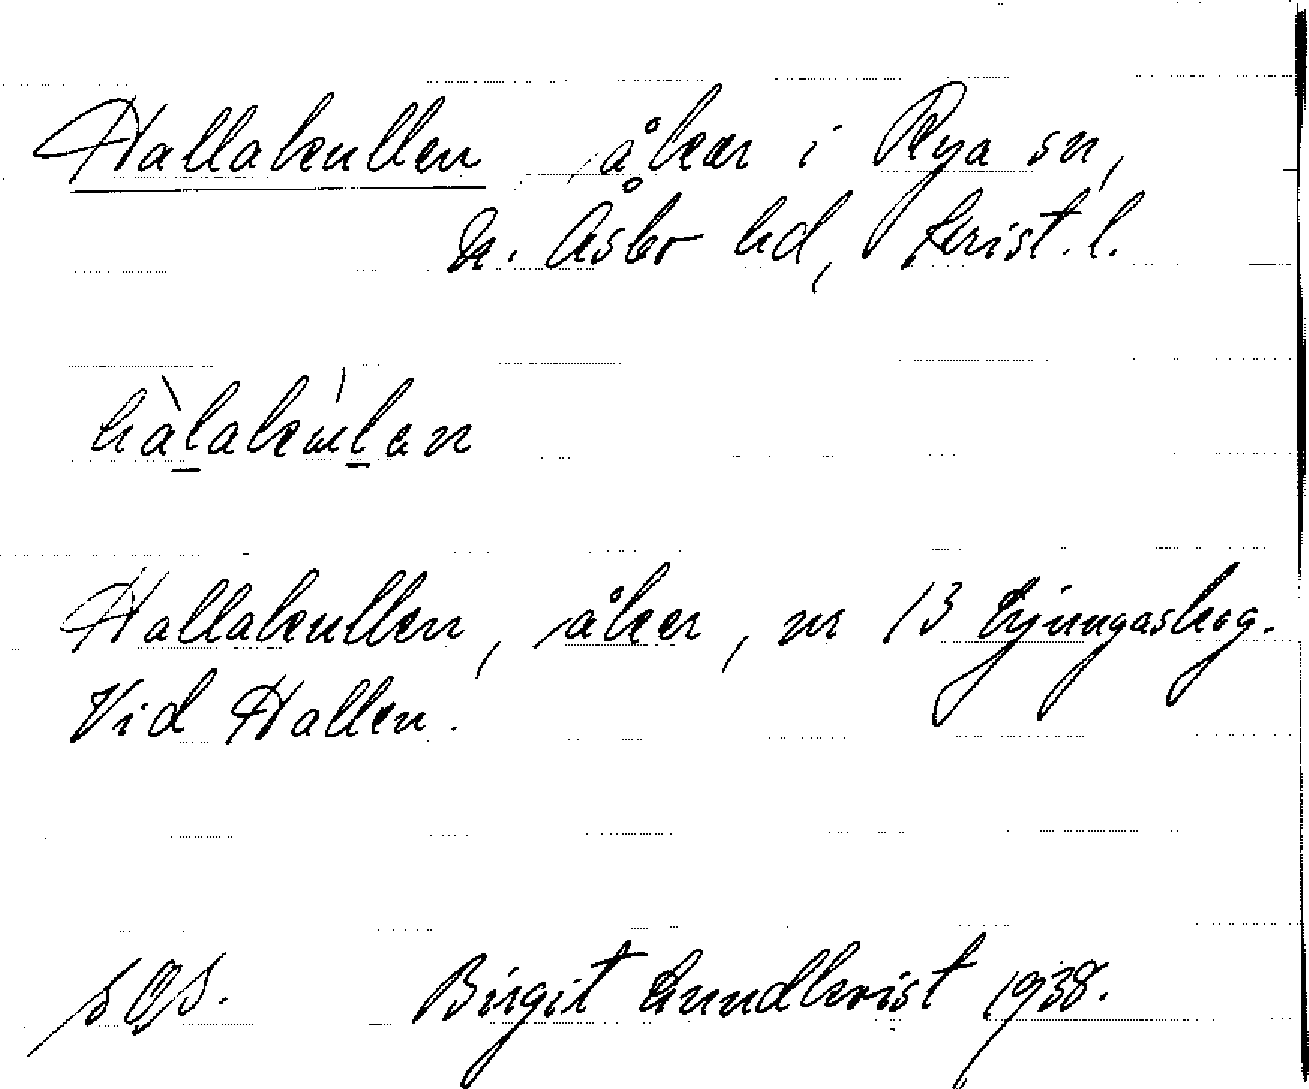 Hallakullen, åker i Rya sn,
N. Åsbo hd, Krist. l.
hàlakùlan
Hallakullen, åker, nr 13 Ljungaskog.
Vid Hallen.
Birgit Lundkvist 1938.